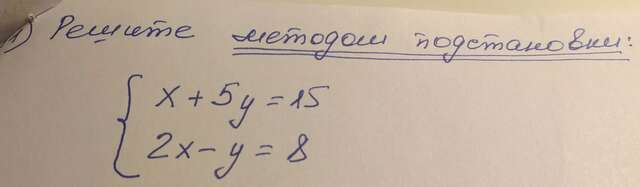 1) Решите методом подстановки:
x + 5y = 15
2x - y = 8